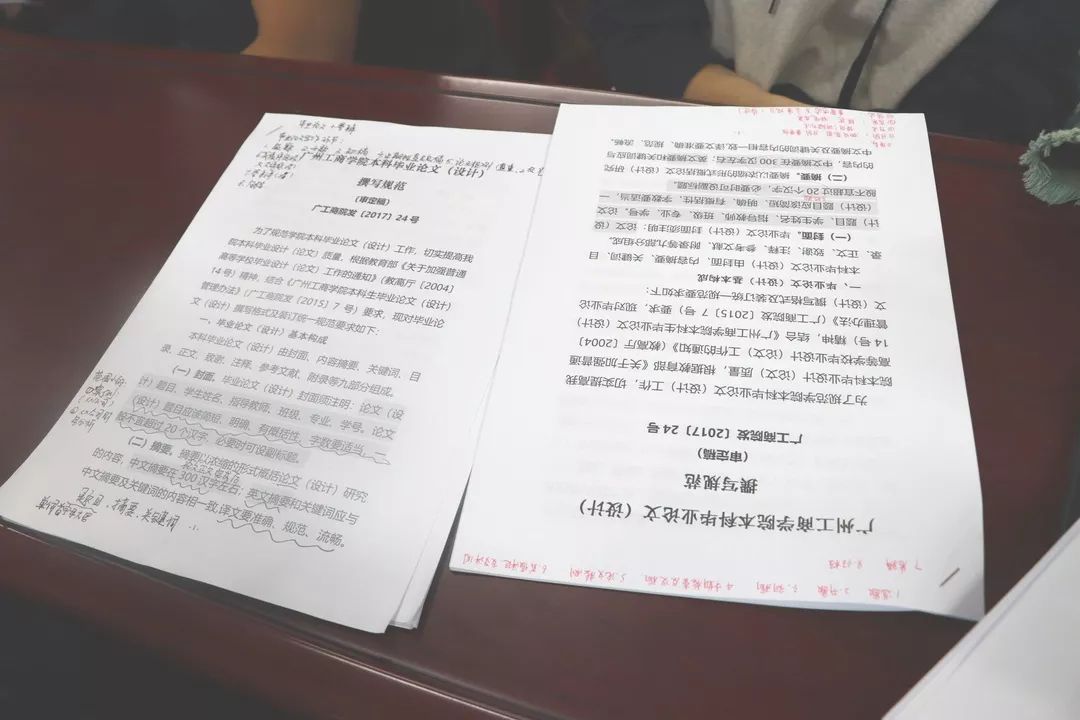 广州工商学院本科毕业论文（设计）
撰写规范
（审定稿）
广工商院发〔2017〕24号
为了规范学院本科毕业论文（设计）工作，切实提高我
院本科毕业设计（论文）质量，根据教育部《关于加强普通
高等学校毕业设计（论文）工作的通知》（教高厅〔2004〕
14号）精神，结合《广州工商学院本科生毕业论文（设计）
管理办法》（广工商院发〔2015〕7号）要求，现对毕业论
文（设计）撰写格式及装订统一规范要求如下：
一、毕业论文（设计）基本构成
本科毕业论文（设计）由封面、内容摘要、关键词、目
录、正文、致谢、注释、参考文献、附录等九部分组成。
（一）封面。毕业论文（设计）封面须注明：论文（设
计）题目、学生姓名、指导教师、班级、专业、学号。论文
（设计）题目应该简短、明确、有概括性，字数要适当，一
般不宜超过20个汉字，必要时可设副标题。
（二）摘要。摘要以浓缩的形式概括论文（设计）研究
的内容，中文摘要在300汉字左右，英文摘要和关键词应与
中文摘要及关键词的内容相一致,译文要准确、规范、流畅。
题目、摘要、关键词
广州工商学院本科毕业论文（设计）
撰写规范
（审定稿）
广工商院发〔2017〕24号
为了规范学院本科毕业论文（设计）工作，切实提高我
院本科毕业设计（论文）质量，根据教育部《关于加强普通
高等学校毕业设计（论文）工作的通知》（教高厅〔2004〕
14号）精神，结合《广州工商学院本科生毕业论文（设计）
管理办法》（广工商院发〔2015〕7号）要求，现对毕业论
文（设计）撰写格式及装订统一规范要求如下：
一、毕业论文（设计）基本构成
本科毕业论文（设计）由封面、内容摘要、关键词、目
录、正文、致谢、注释、参考文献、附录等九部分组成。
（一）封面。毕业论文（设计）封面须注明：论文（设
计）题目、学生姓名、指导教师、班级、专业、学号。论文
（设计）题目应该简短、明确、有概括性，字数要适当，一
般不宜超过20个汉字，必要时可设副标题。
（二）摘要。摘要以浓缩的形式概括论文（设计）研究
的内容，中文摘要在300汉字左右，英文摘要和关键词应与
中文摘要及关键词的内容相一致,译文要准确、规范、流畅。